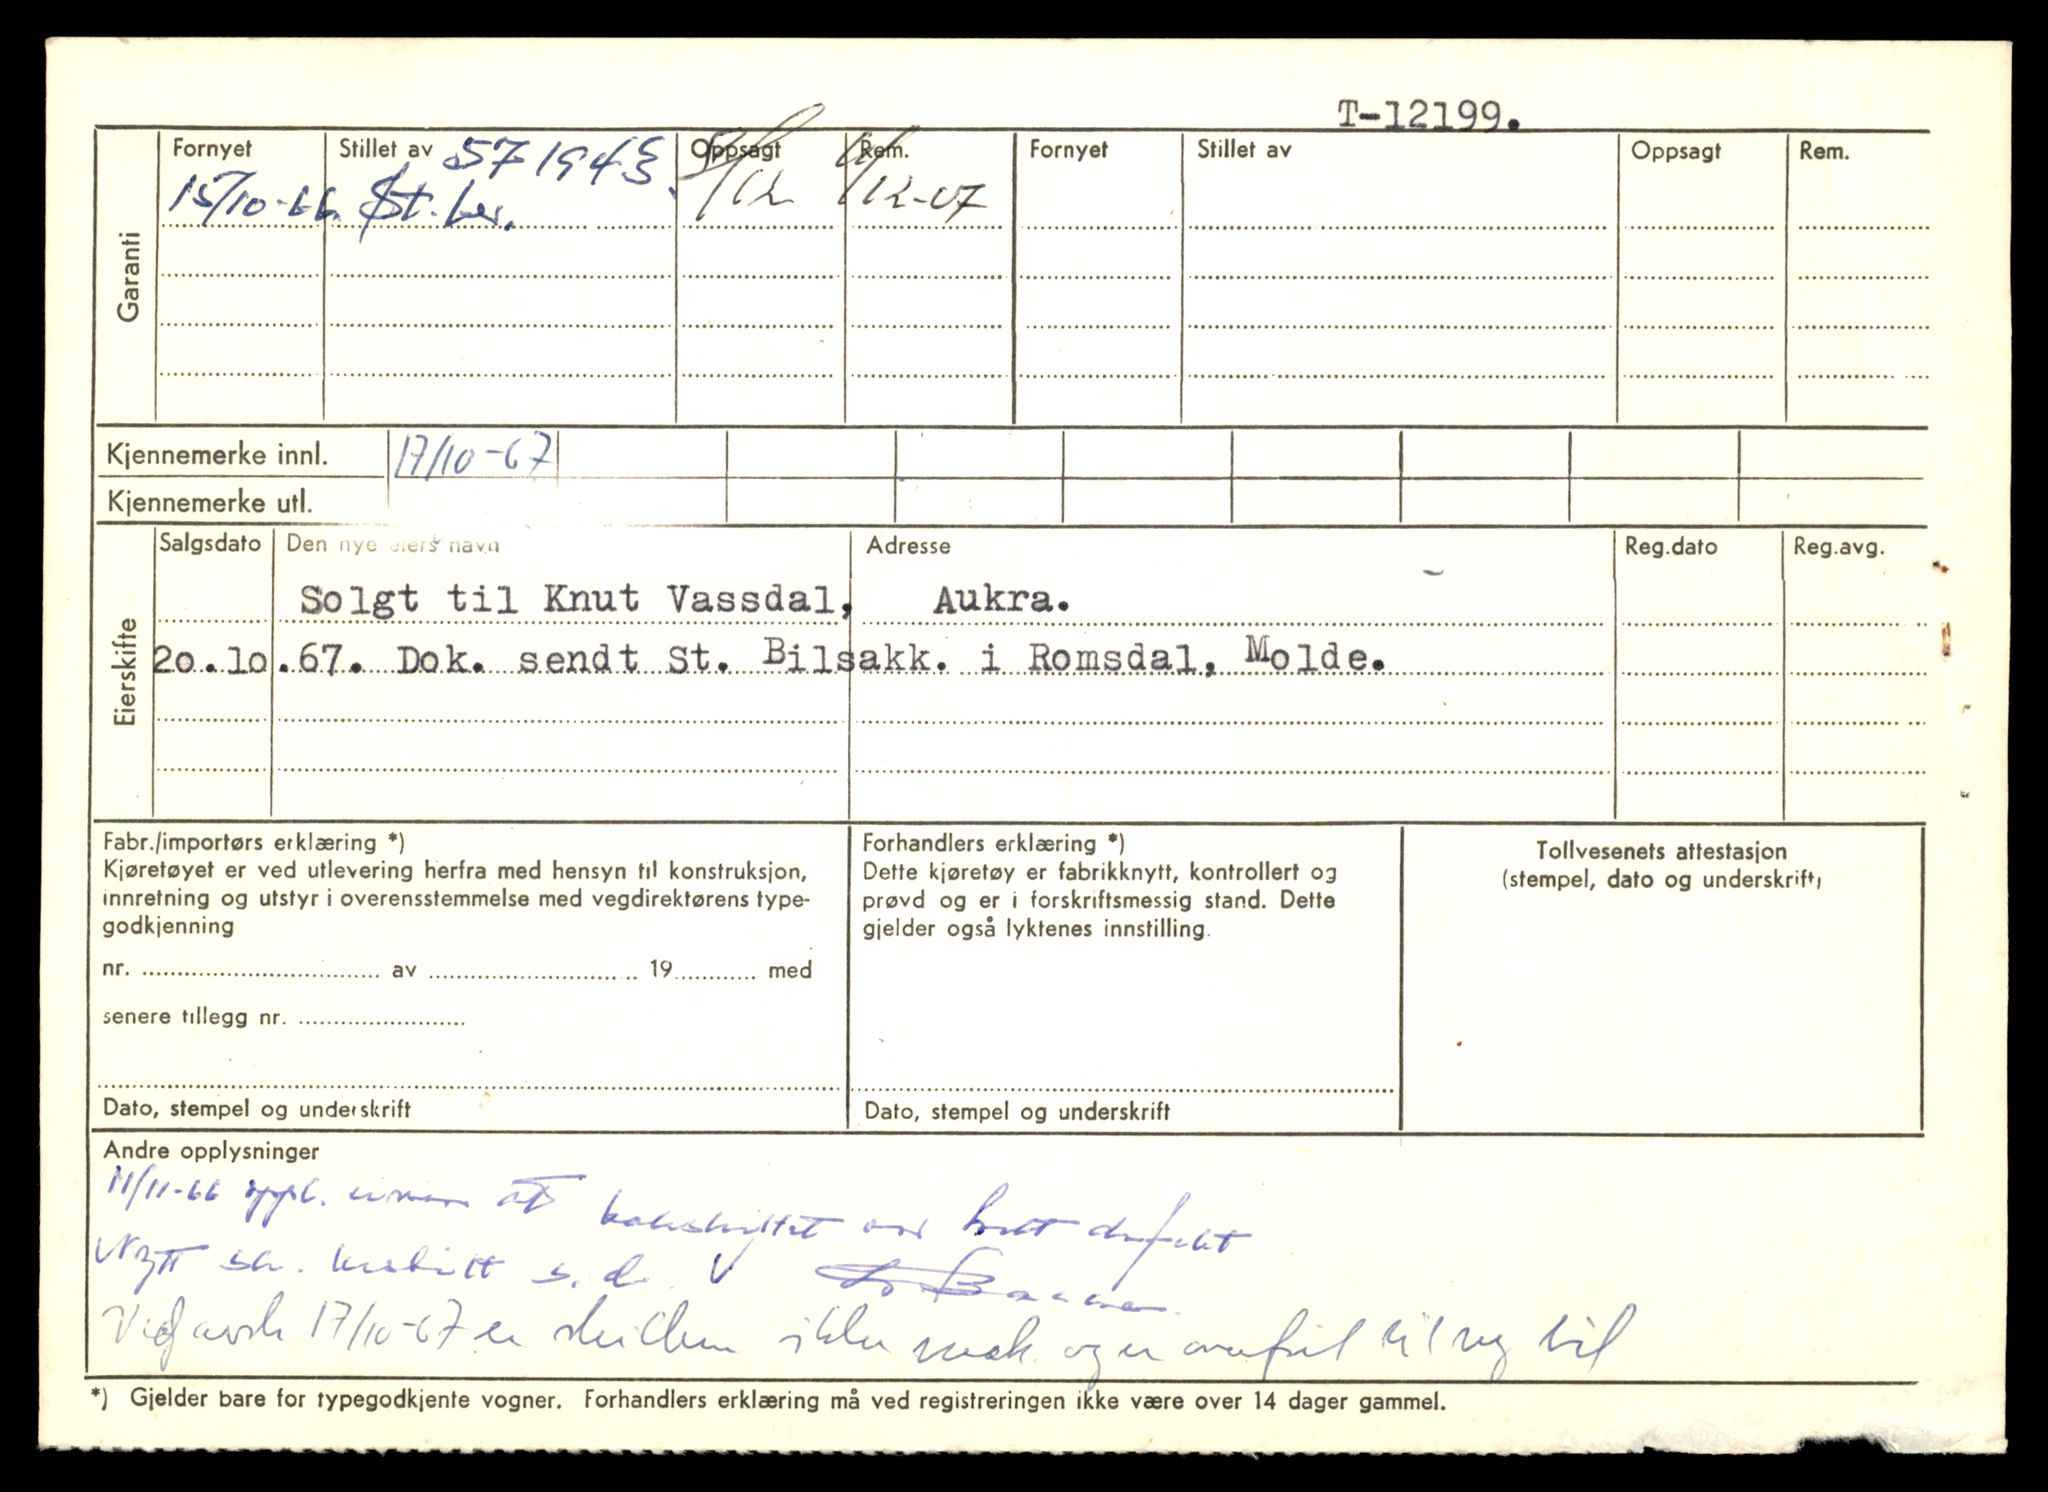 T-12199.
Garanti
Fornyet Stillet av 571945 Oppsagt Rem. Fornyet Stillet av Oppsagt Rem.
15/10-66 St. ber. 5/12 /12-67
Kjennemerke innl. 17/10-67
Kjennemerke utl.
Eierskifte
Salgsdato Den nye eiers navn Adresse Reg.dato Reg.avg.
Solgt til Knut Vassdal, Aukra.
20.10.67. Dok. sendt St. Bilsakk. i Romsdal, Molde.
Fabr./importørs erklæring *)
Kjøretøyet er ved utlevering herfra med hensyn til konstruksjon,
innretning og utstyr i overensstemmelse med vegdirektørens type-
godkjenning
nr. av 19 med
senere tillegg nr.
Dato, stempel og underskrift
Forhandlers erklæring *)
Dette kjøretøy er fabrikknytt, kontrollert og
prøvd og er i forskriftsmessig stand. Dette
gjelder også lyktenes innstilling.
Dato, stempel og underskrift
Tollvesenets attestasjon
(stempel, dato og underskrift)
Andre opplysninger
11/11-66 oppl. at var defekt
Nytt s.d.
17/10-67 er skilten ikke og er til ny bil
*) Gjelder bare for typegodkjente vogner. Forhandlers erklæring må ved registreringen ikke være over 14 dager gammel.